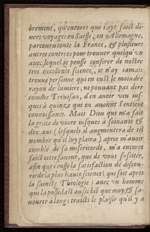 brement, qu'encores que i'aye faict di-
uers voyages en Suisse, en Allemagne,
parcouru toute la France, & plusieurs
autres contrées pour trouver quelqu'vn
auec lequel ie peusse conferer de nostre
tres excellente science, ie n'ay iamais
trouvé personne qui en eust le moindre
rayon de lumiere, ne pouuant pas dire
comme Trevisan, d'en auoir veu
quinze qui en auoient l'entiere
connoissance. Mais Dieu qui m'a fait
la grace de viure iusques à soixante &
dix ans (lesquels il augmentera de tel
nombre qu'il luy plaira) apres m'auoir
comblé de sa misericorde, m'a encores
faict cette faveur, que de vous
afin que i'eusse la satisfaction de discou-
rir de la plus haute science, qui soit apres
la saincte Theologie: auec vn homme
qui la possedast aussi bien que moy. Ie sa-
uourer à longs traicts le plaisir qu'il y a